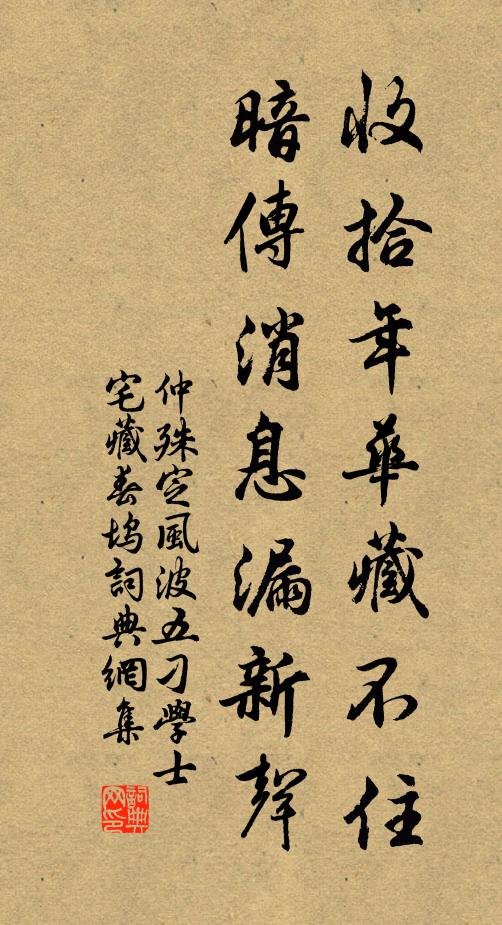 收拾年華藏不住
暗傳消息漏新聲
仲殊定風波五刁學士
宅藏春塢詞典網集
詞典網印